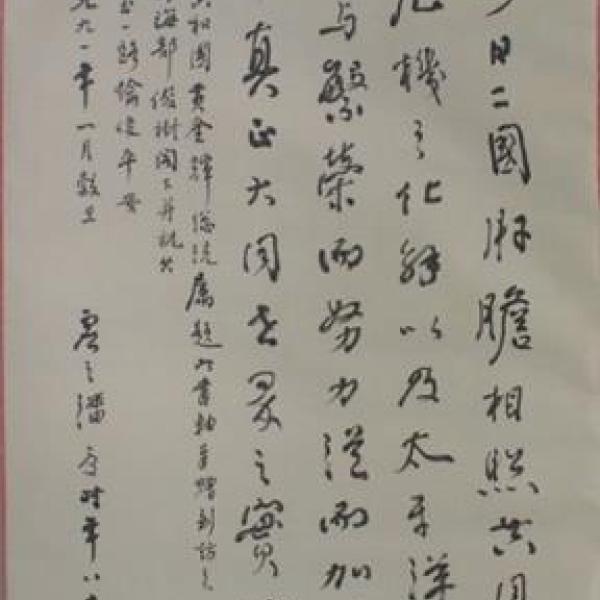 今日二國肝膽相照共同
危機之化解以及太平洋
與繁榮而努力從而加
真正大同世界之實
共和國黃金輝總統屬題此書軸手贈到訪之
海部俊樹閣下并祝其
一路愉快平安
九九一年一月穀旦
潘 時年八